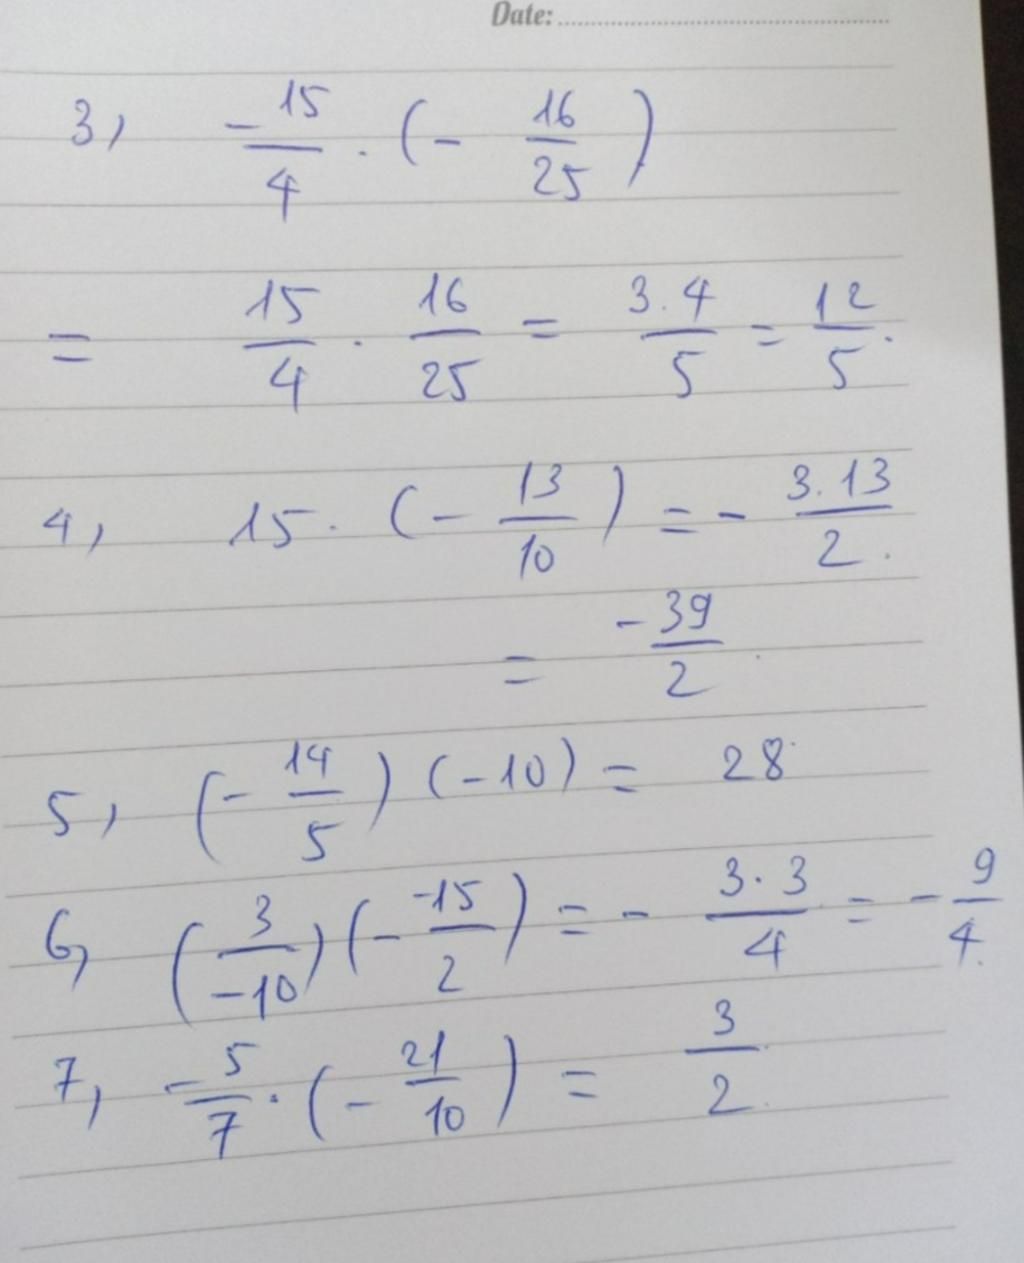 Date:
3, -15/4 . (- 16/25)
= 15/4 . 16/25 = 3.4/5 = 12/5.
4, 15. (- 13/10) = - 3.13/2.
= -39/2.
5, (- 14/5) (-10) = 28
6, (3/-10) (- -15/2) = - 3.3/4 = - 9/4.
7, -5/7 . (- 21/10) = 3/2.